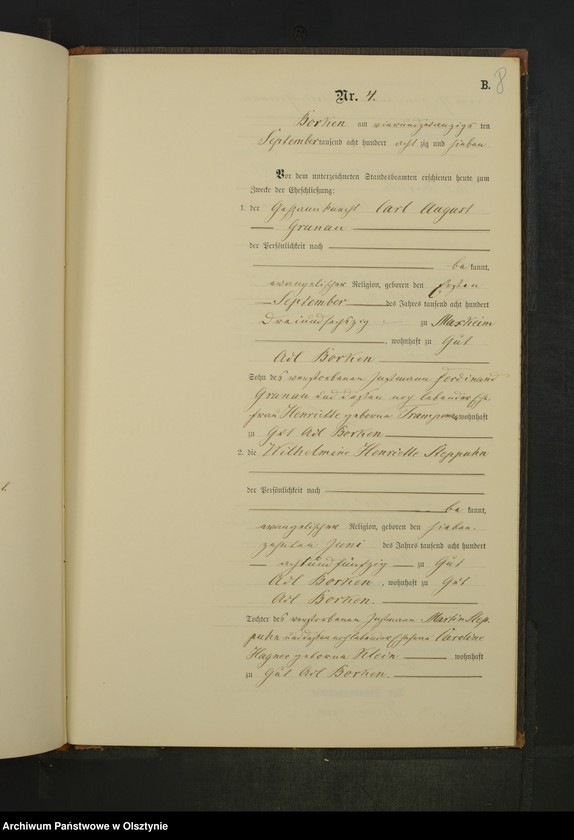 B. 8
Nr. 4.
Borken am vierundzwanzigs ten
September tausend acht hundert acht zig und sieben
Vor dem unterzeichneten Standesbeamten erschienen heute zum
Zwecke der Eheschließung:
1. der Gespannknecht Carl August
Granau
der Persönlichkeit nach
be kannt,
evangelischer Religion, geboren den Ersten
September des Jahres tausend acht hundert
Dreiundsechszig zu Maxkeim
, wohnhaft zu Gut
Adl Borken
Sohn des verstorbenen Instmann Ferdinand
Granau und dessen noch lebender Ehe-
frau Henriette geborene wohnhaft
zu Gut Adl Borken
2. die Wilhelmine Henriette Steppuhn
der Persönlichkeit nach
be kannt,
evangelischer Religion, geboren den sieben-
zehnten Juni des Jahres tausend acht hundert
achtundfünfzig zu Gut
Adl Borken, wohnhaft zu Gut
Adl Borken.
Tochter des verstorbenen Instmann Martin Step-
puhn und dessen noch lebender Ehefrau Caroline
Hagner geborene Klein wohnhaft
zu Gut Adl Borken.
Archiwum Państwowe w Olsztynie